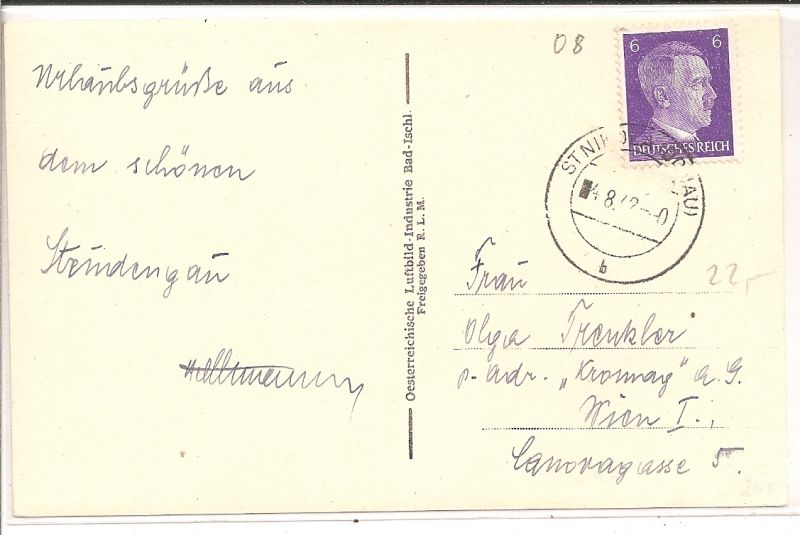 Urlaubsgrüße aus
dem schönen
Strudengau
Oesterreichische Luftbild-Industrie Bad-Ischl.
Freigegeben R. L. M.
08
6 6
DEUTSCHES REICH
ST NIKOLA (DONAU)
4.8.42-0
b
22,-
Frau
Olga Trenkler
p. Adr. „Kromag" A. G.
Wien I.,
Canovagasse 5.